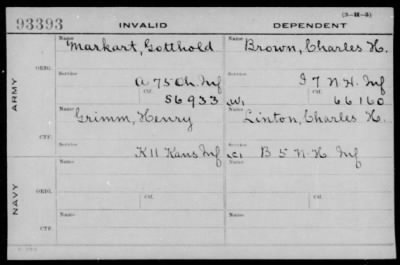 (3-H-5)
93393 INVALID DEPENDENT
Name Name
Markart, Gotthold Brown, Charles H.
ARMY
ORIG.
Service Service
A 75 Oh. Inf I 7 N.H. Inf
Ctf. Ctf.
56933 W, 66160
Name Name
Grimm, Henry Linton, Charles H.
CTF.
Service Service
K 11 Kans Inf C, B 5 N.H. Inf
NAVY
Name Name
ORIG.
Service Service
Ctf. Ctf.
Name Name
CTF.
Service Service